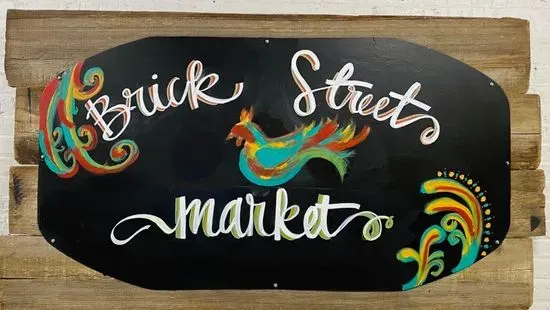 Brick Street
market